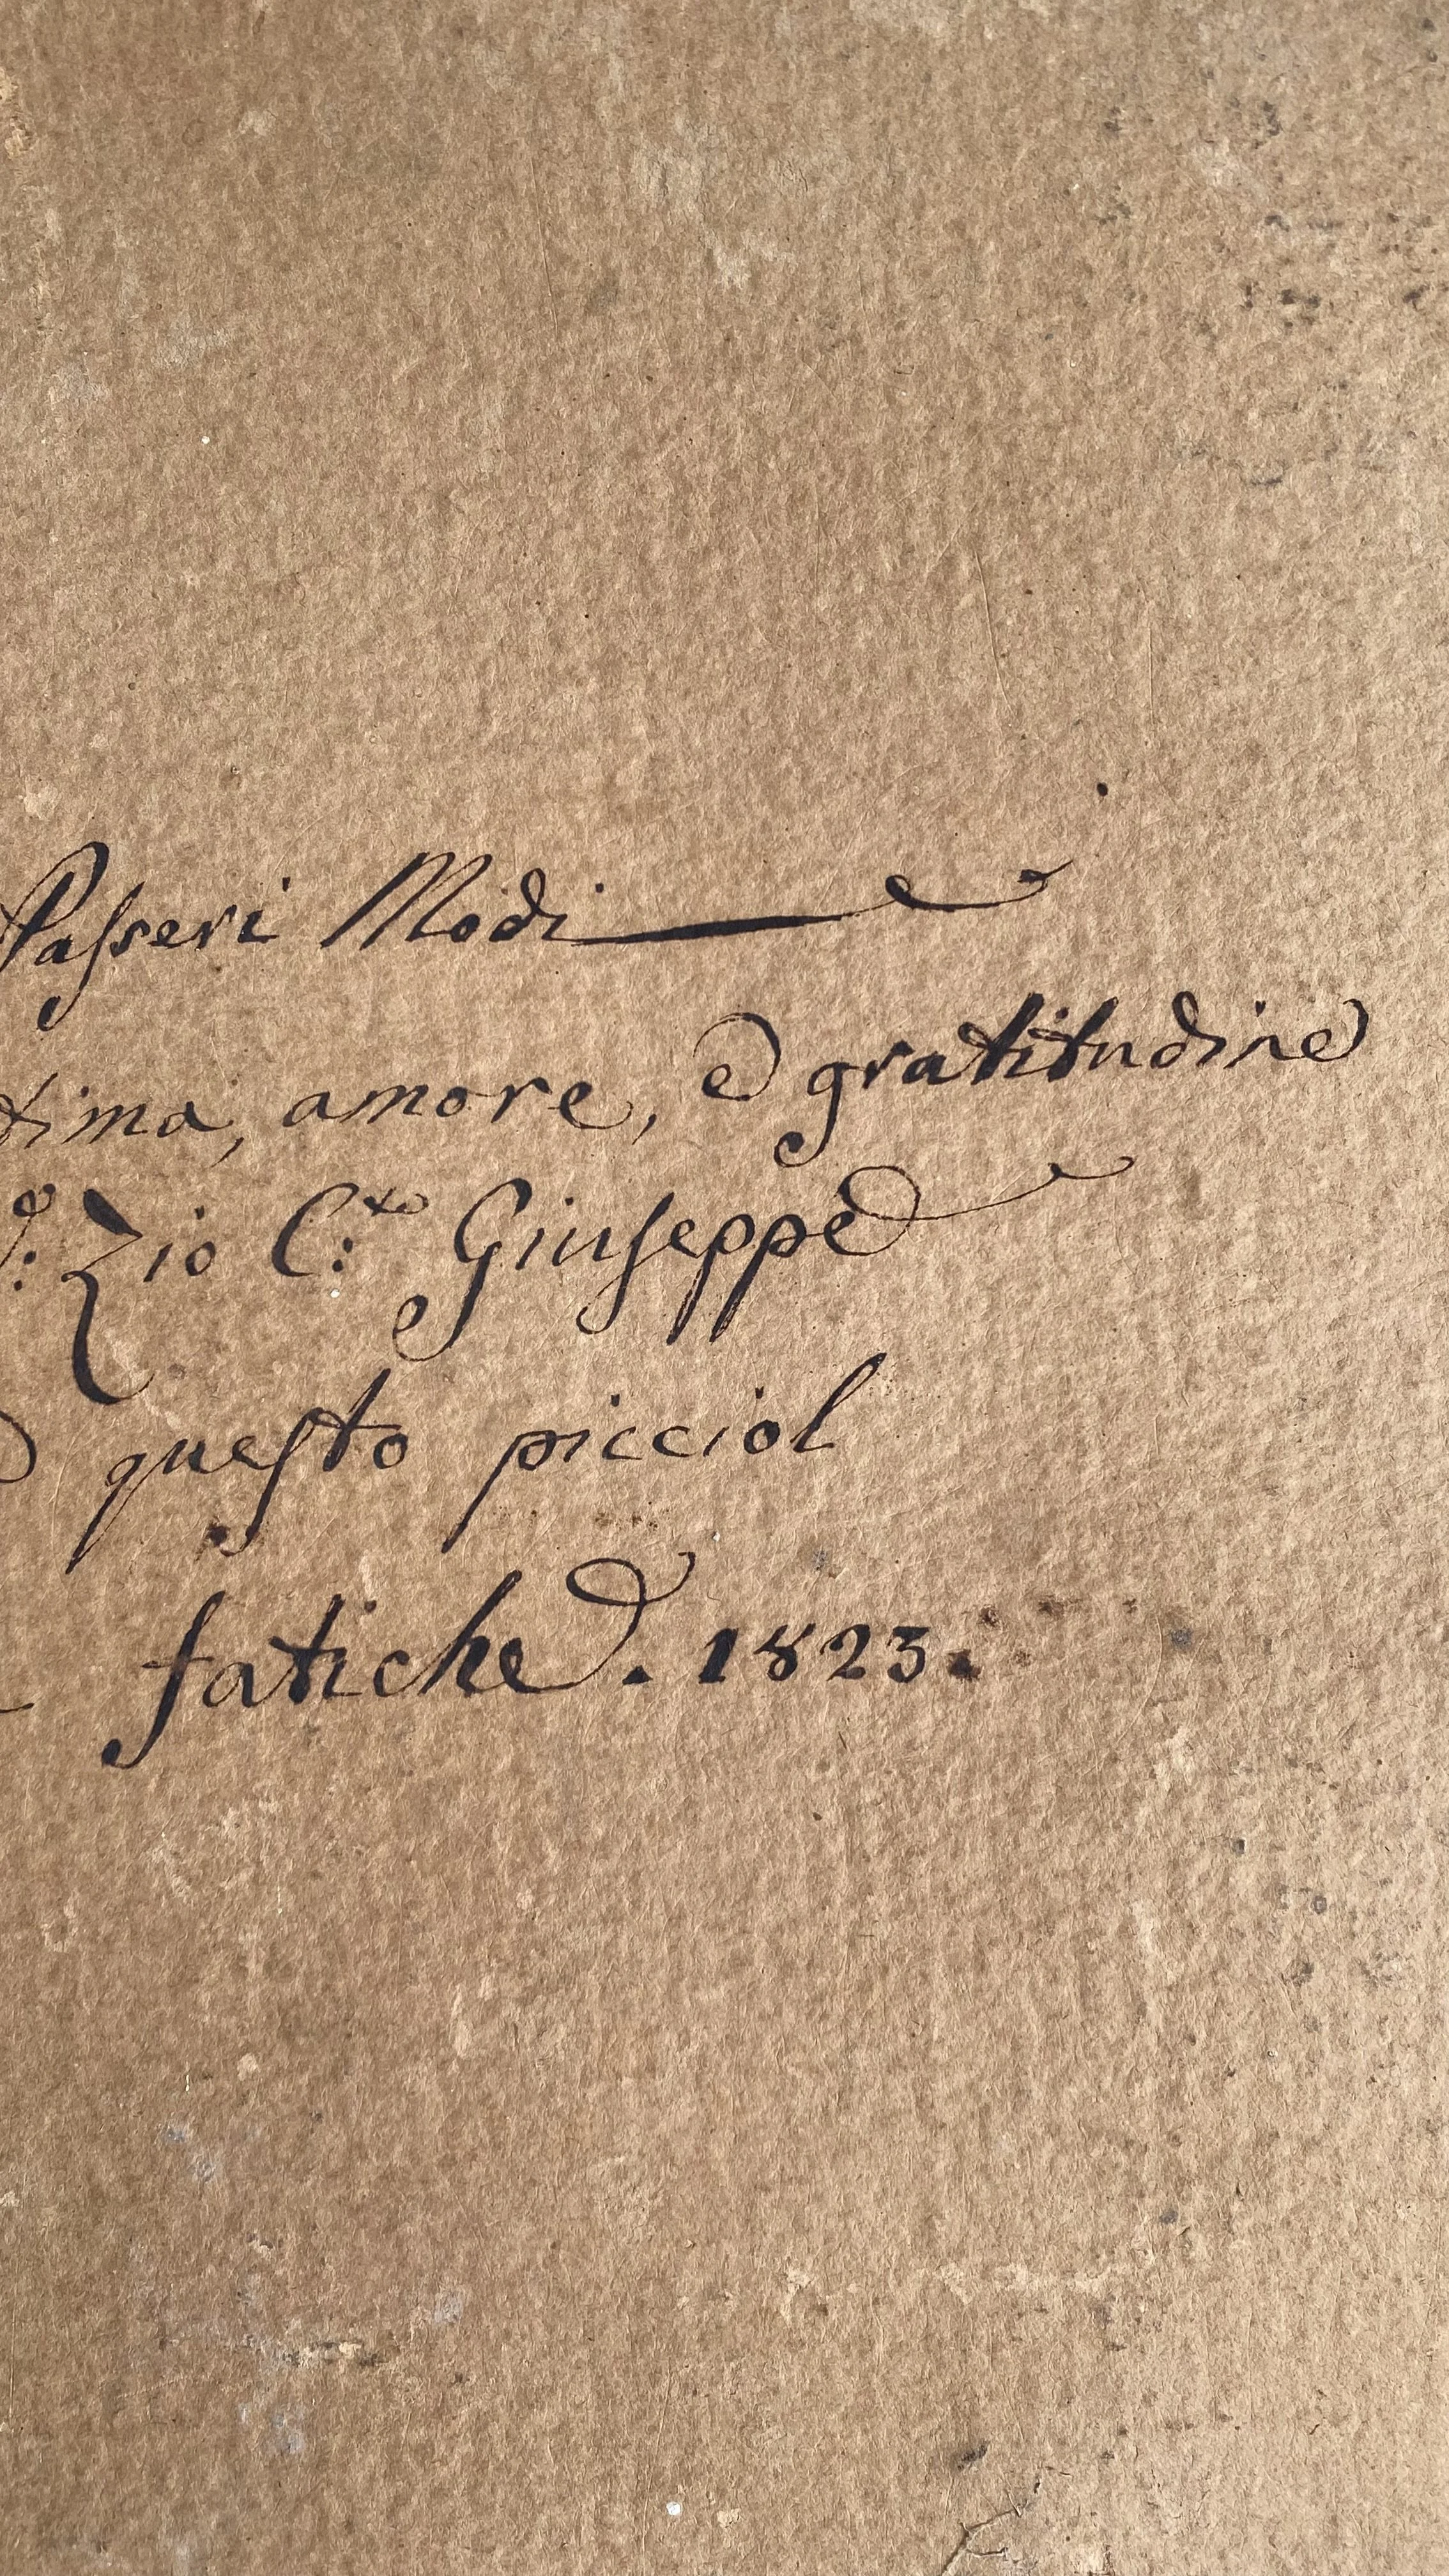 Passeri Modi
tima, amore, e gratitudine
Zio C:to Giuseppe
questo picciol
fatiche. 1823.